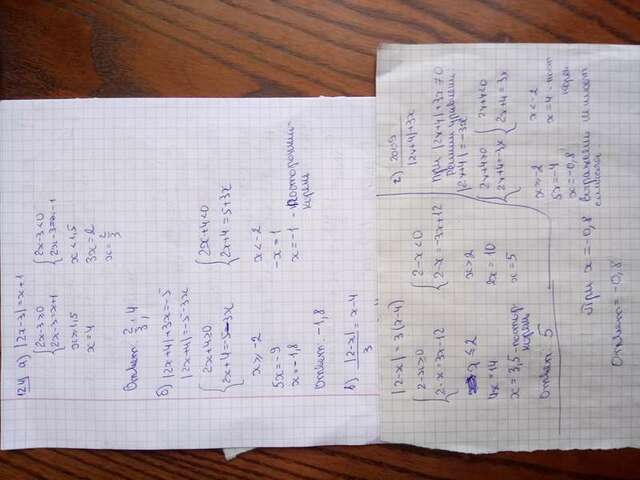 124 а) |2x-3|=x+1
{2x-3≥0 {2x-3<0
{2x-3=x+1 {2x-3=-x-1
x≥1,5 x<1,5
x=4 3x=2
x=2/3
Ответ: 2/3; 4
б) |2x+4|+3x=-5
|2x+4|=-5-3x
{2x+4≥0 {2x+4<0
{2x+4=-5-3x {2x+4=5+3x
x≥-2 x<-2
5x=-9 -x=1
x=-1,8 x=-1 - посторонний корень
Ответ: -1,8
в) |2-x|/3=x-4
|2-x|=3(x-4)
{2-x≥0 {2-x<0
{2-x=3x-12 {2-x=-3x+12
x≤2 x>2
4x=14 2x=10
x=3,5 постор корень x=5
Ответ: 5
г) 2005/(|2x+4|+3x)
При |2x+4|+3x≠0
Решим уравнение:
|2x+4|=-3x
{2x+4≥0 {2x+4<0
{2x+4=-3x {2x+4=3x
x≥-2 x<-2
5x=-4 x=4 - пост корен
x=-0,8
При x=-0,8 выражение не имеет смысла
Ответ: -0,8